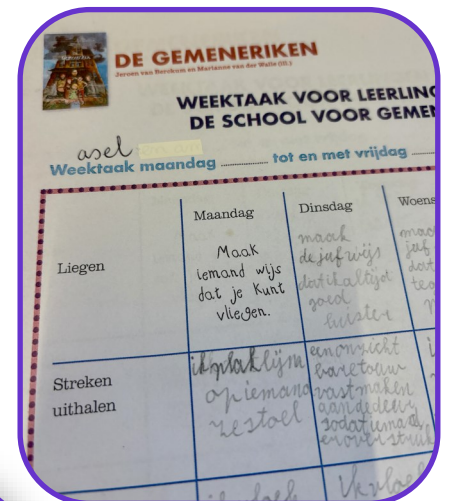 DE GEMENERIKEN
Jeroen van Berckum en Marianne van der Walle (ill.)
WEEKTAAK VOOR LEERLING
DE SCHOOL VOOR GEMEN
asel
Weektaak maandag ......... tot en met vrijdag
Maandag
Dinsdag
Woens
Liegen
Maak
iemand wijs
dat je kunt
vliegen.
maak
de juf wijs
dat ik altijd
goed
luister
maa
juf
dat
Streken
uithalen
ik plak lijm
op iemand
ze stoel
een onzicht
bare touw
vast maken
aan de deur
zodat iemand
erover struik